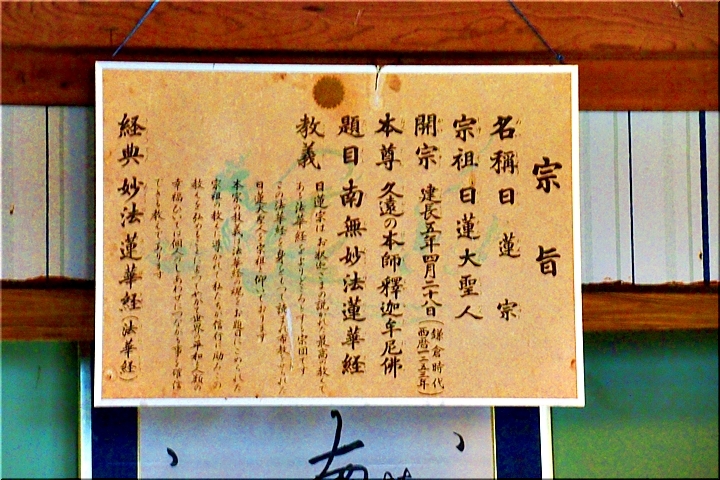 宗旨
名稱 日蓮宗
宗祖 日蓮大聖人
開宗 建長五年四月二十八日(鎌倉時代 西暦一二五三年)
本尊 久遠の本師釋迦牟尼佛
題目 南無妙法蓮華経
教義
日蓮宗はお釈迦さまの説かれた最高の教えで
ある法華経をよりどころとする宗団です
この法華経を身をもって読まれ布教せられた
日蓮大聖人を宗祖と仰いでおります
本宗の教義は法華経の魂であるお題目にこめられた
宗祖の教えに導かれて私たちが信行に励みこの
教えを弘めることによってのみ世界の平和と人類の
幸福ひいては個人のしあわせにつながる事を確信
できる教えであります
経典 妙法蓮華経(法華経)
南